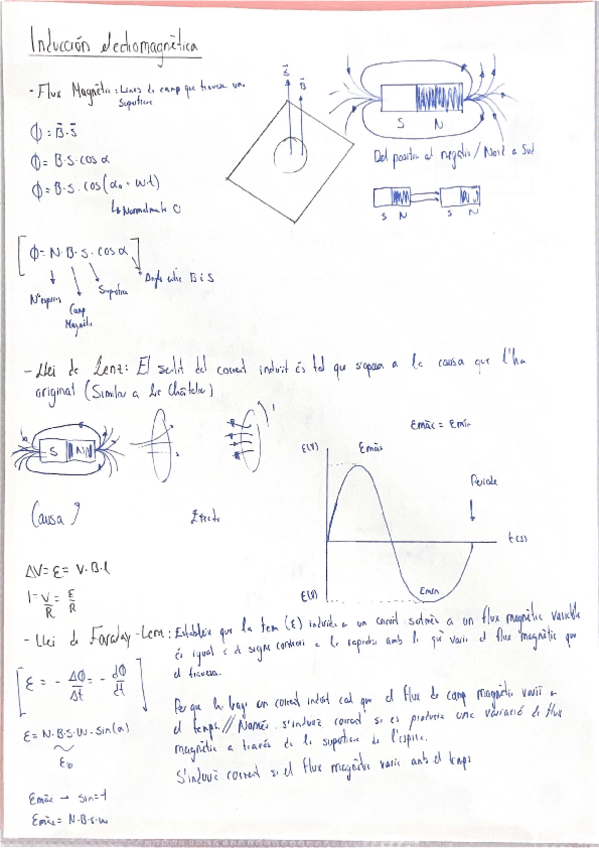 Inducción electromagnètica
- Flux Magnètic: Línies de camp que travessa una
superfície
S B
ϕ = B·S
ϕ = B·S·cos α
ϕ = B·S·cos(α₀ + w·t)
↳ Normalmente 0
S N
Del positiu al negatiu / Nord a Sud
S N S N
[ϕ = N·B·S·cos α]
Nº espires
Camp
Magnètic
Superfície
Angle entre B i S
- Llei de Lenz: El sentit del corrent induït és tal que s'oposa a la causa que l'ha
originat (Similar a Le Châtelier)
S N
Causa
Efecte
Emàx = Emín
E(V)
Emàx
Període
t(s)
E(V)
Emín
ΔV = ε = V·B·l
I = V/R = ε/R
- Llei de Faraday-Lenz: Estableix que la fem (ε) induïda a un corrent sotmès a un flux magnètic variable
és igual i de signe contrari a la rapidesa amb la què varia el flux magnètic que
el travessa.
[ε = - Δϕ/Δt = - dϕ/dt]
Per que hi hagi un corrent induït cal que el flux de camp magnètic varii en
el temps // Només s'indueix corrent si es produeix una variació de flux
magnètic a través de la superfície de l'espira.
ε = N·B·S·w·sin(α)
ε₀
S'indueix corrent si el flux magnètic varia amb el temps
Emàx → sin=1
Emàx = N·B·S·w